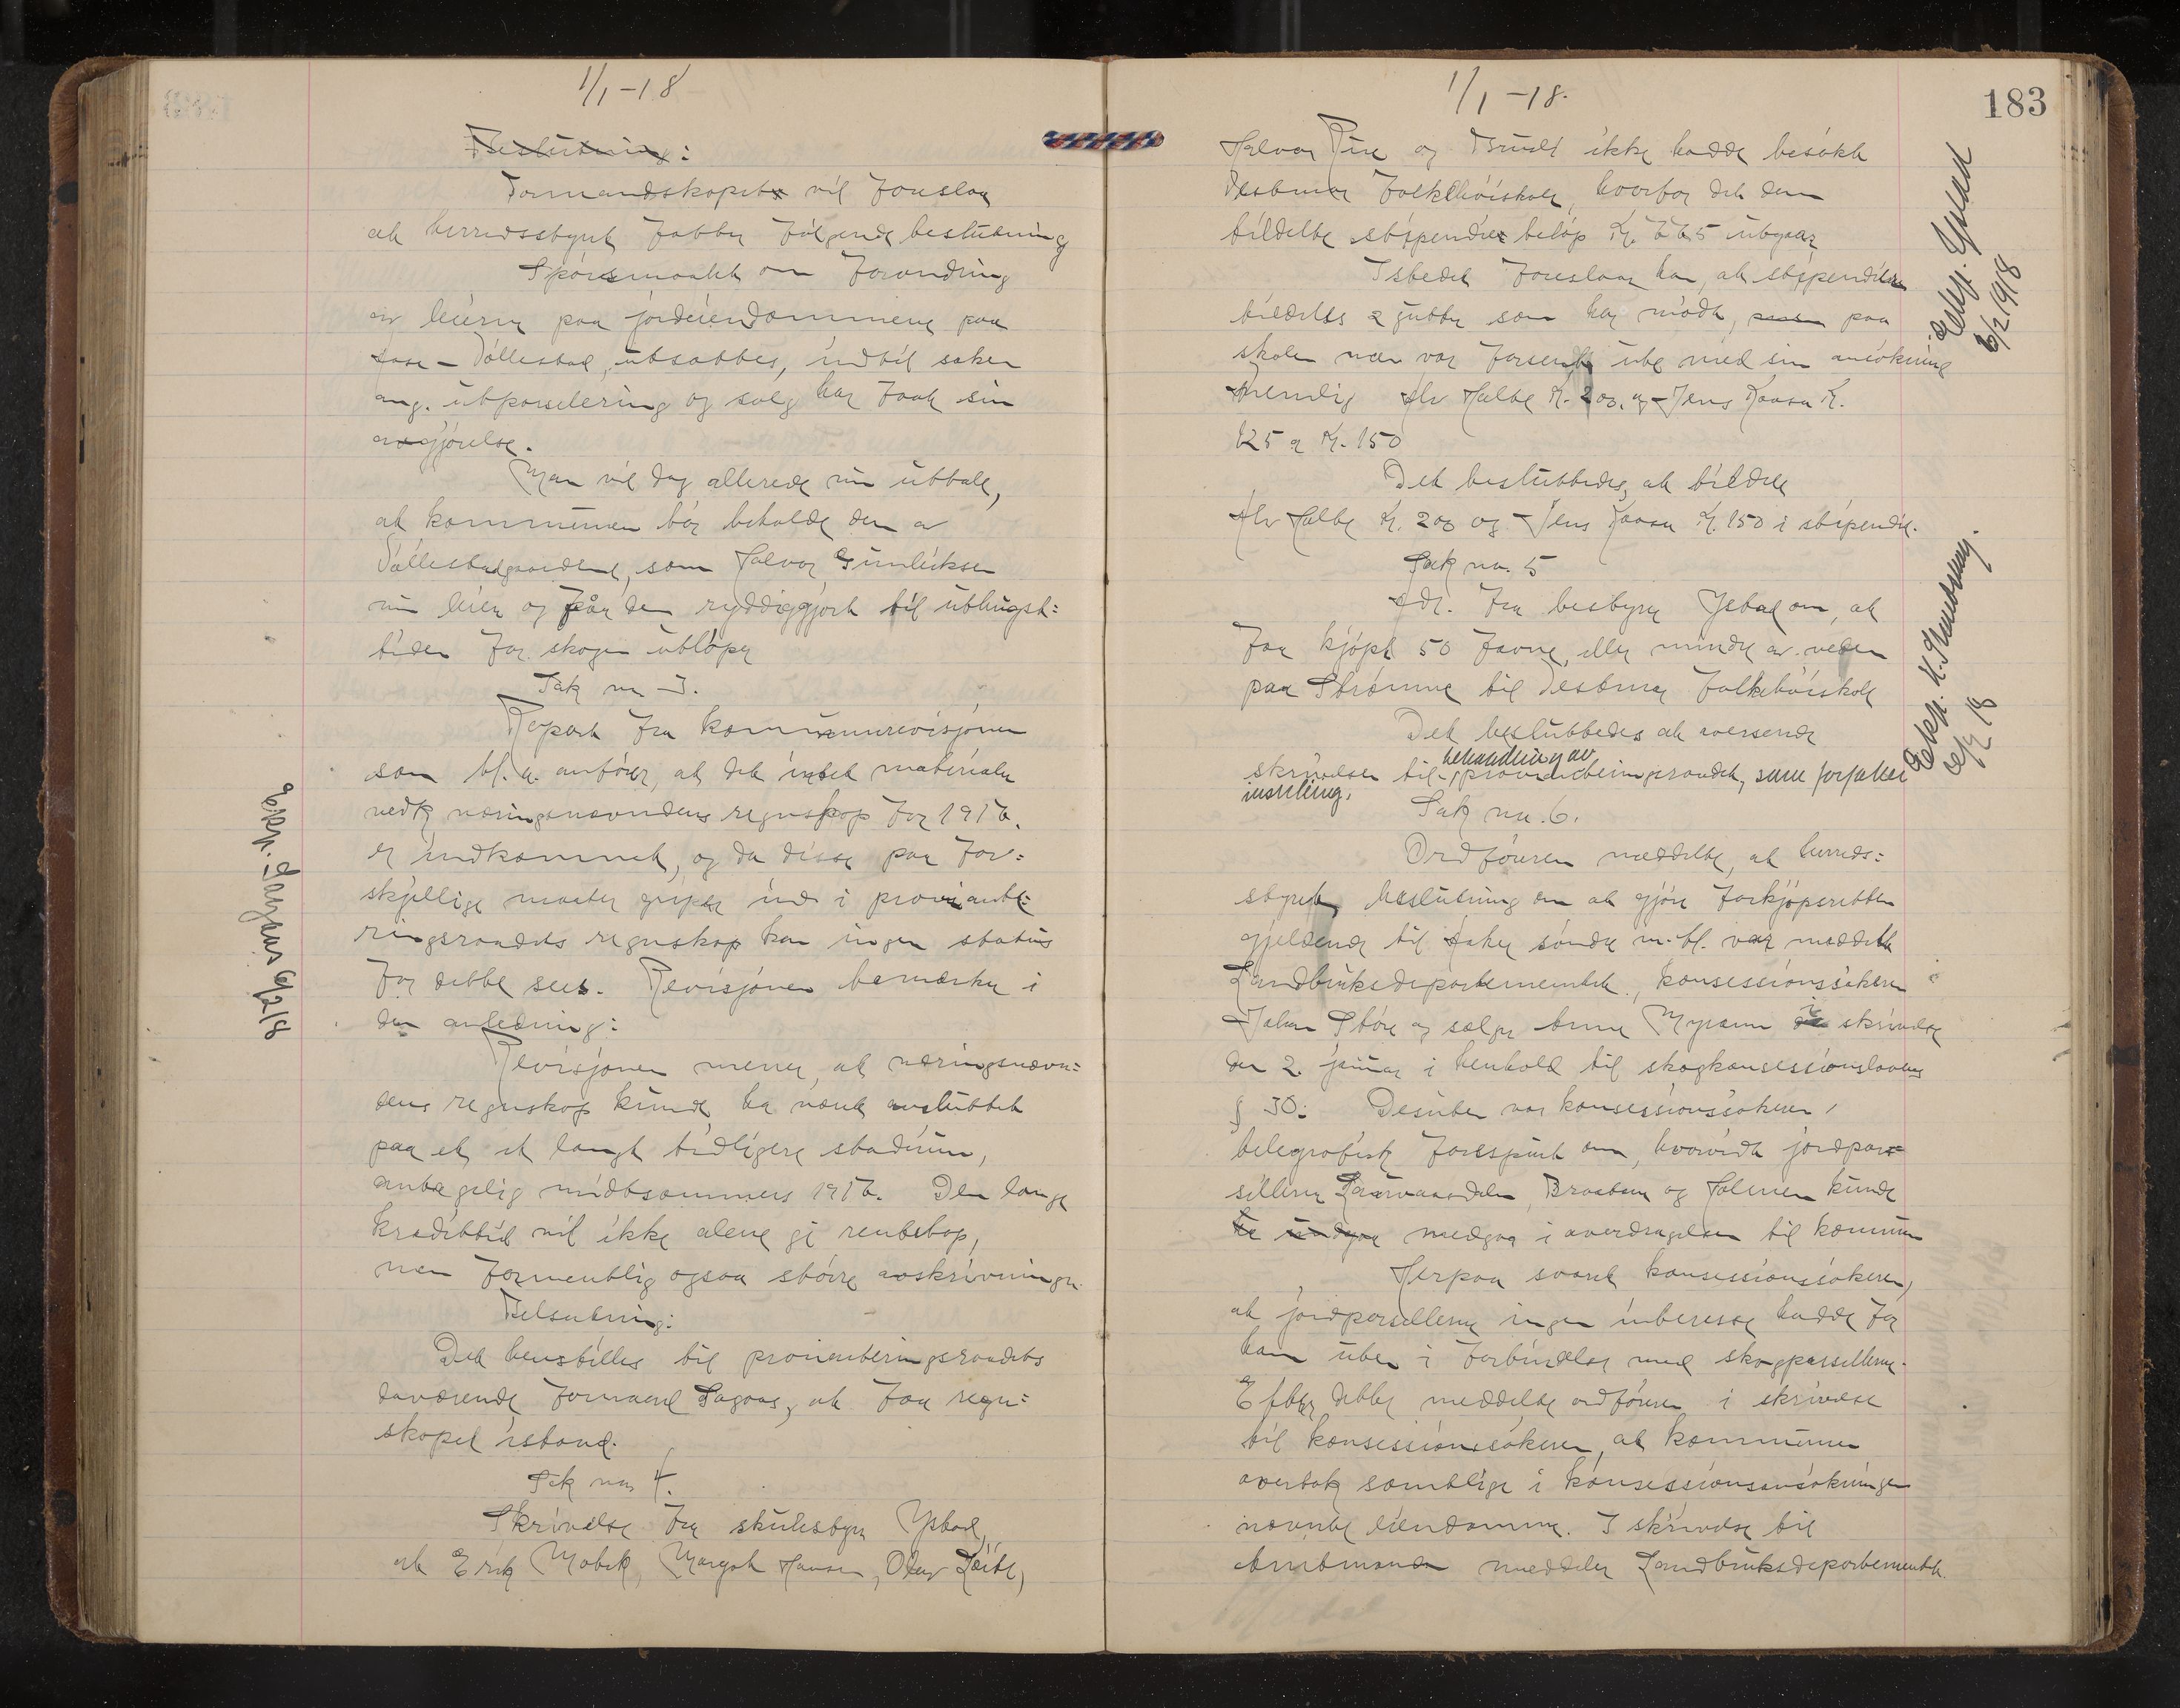 1/1-18
Beslutning:
Formandskapet vil foreslaa
at herredsstyret fatter følgende beslutning
Spørsmaalet om forandring
av leierne paa jordeiendommene paa
Aase - Vállestad, utsattes, indtil saken
ang. utparselering og salg har faat sin
avgjørelse.
Man vil dog allerede nu uttale,
at kommunen bør beholde den av
Vállestadgaardene, som Halvor Gunleiksen
nu leier og får den ryddiggjort til uthugst=
tiden for skogen utløper
Sak no 3.
Raport fra kommunerevisjonen
som bl. a. anfører, at det intet materiale
vedk næringsnevndens regnskap for 1916.
er indkommet, og da disse paa for=
skjellige maater griper ind i proviante=
ringsraadets regnskap kan ingen status
for dette sees. Revisjonen bemærker i
den anledning:
Revisjonen mener, at næringsnevn=
dens regnskap kunde ha været avsluttet
paa et langt tidligere stadium,
antagelig midtsommers 1916. Den lange
kredittid vil ikke alene gi rentetap,
men formentlig ogsaa større avskrivninger.
Belsutning:
Det henstilles til provianteringsraadets
daværende formand Sagaas, at faa regn=
skapet istand.
Sak no 4.
Skrivelse fra skulestyrer Ystad,
at Erik Mobek, Margot Hansen, Olav Leite,
Ekp. Sagaas 6/2 18
183
1/1-18.
Halvor Rue og Brudl ikke hadde besøkt
Vestmar Folkehöiskole, hvorfor det dem
tildelte stipendiebeløp Kr. 765 utgaar
Istedet foreslaar han, at stipendier
tildeles 2 gutter som har mødt, paa
skolen men var forsent ute med sin ansøkning
nemlig Alv Halbe Kr. 200. og Jens Kaasa Kr.
125 a Kr. 150
Det besluttedes, at tildele
Alv Halbe Kr. 200 og Jens Kaasa Kr. 150 i stipendie.
Sak no. 5
Adr. fra bestyrer Ystad om, at
faa kjøpt 50 favne, eller mindre av veden
paa Strømme til Vestmar Folkehöiskole
Det besluttedes at oversende
skrivelsen til behandling av provianteringsraadet, som forfatter
instilling.
Sak no. 6.
Ordføreren meddelte, at herreds=
styrets beslutning om at gjøre forkjøpsretten
gjeldende til Aaker søndre m. fl. var meddelt
Landbruksdepartementet, konsessionssøkeren
Johan Støre og sælger Anne Myrann i skrivelse
den 2. januar i henhold til skogkonsessionslovens
§ 30. Desuten var konsessionssøkeren
telegrafisk forespurt om, hvorvidt jordpar=
sellerne, Braaten og Holmen kunde
medgaa i overdragelsen til kommunen
Herpaa svarte konsessionssøkeren,
at jordparsellerne ingen interesse hadde for
ham uten i forbindelse med skogparsellerne.
Efter dette meddelte ordføreren i skrivelse
til konsessionssøkeren, at kommunen
overtok samtlige i konsessionsansøkningen
nævnte eiendomme. I skrivelse til
Amtmanden meddeler Landbruksdepartementet
Ekp. Ystad
6/2 1918
Ekp. K. Knudsen.
6/2 18